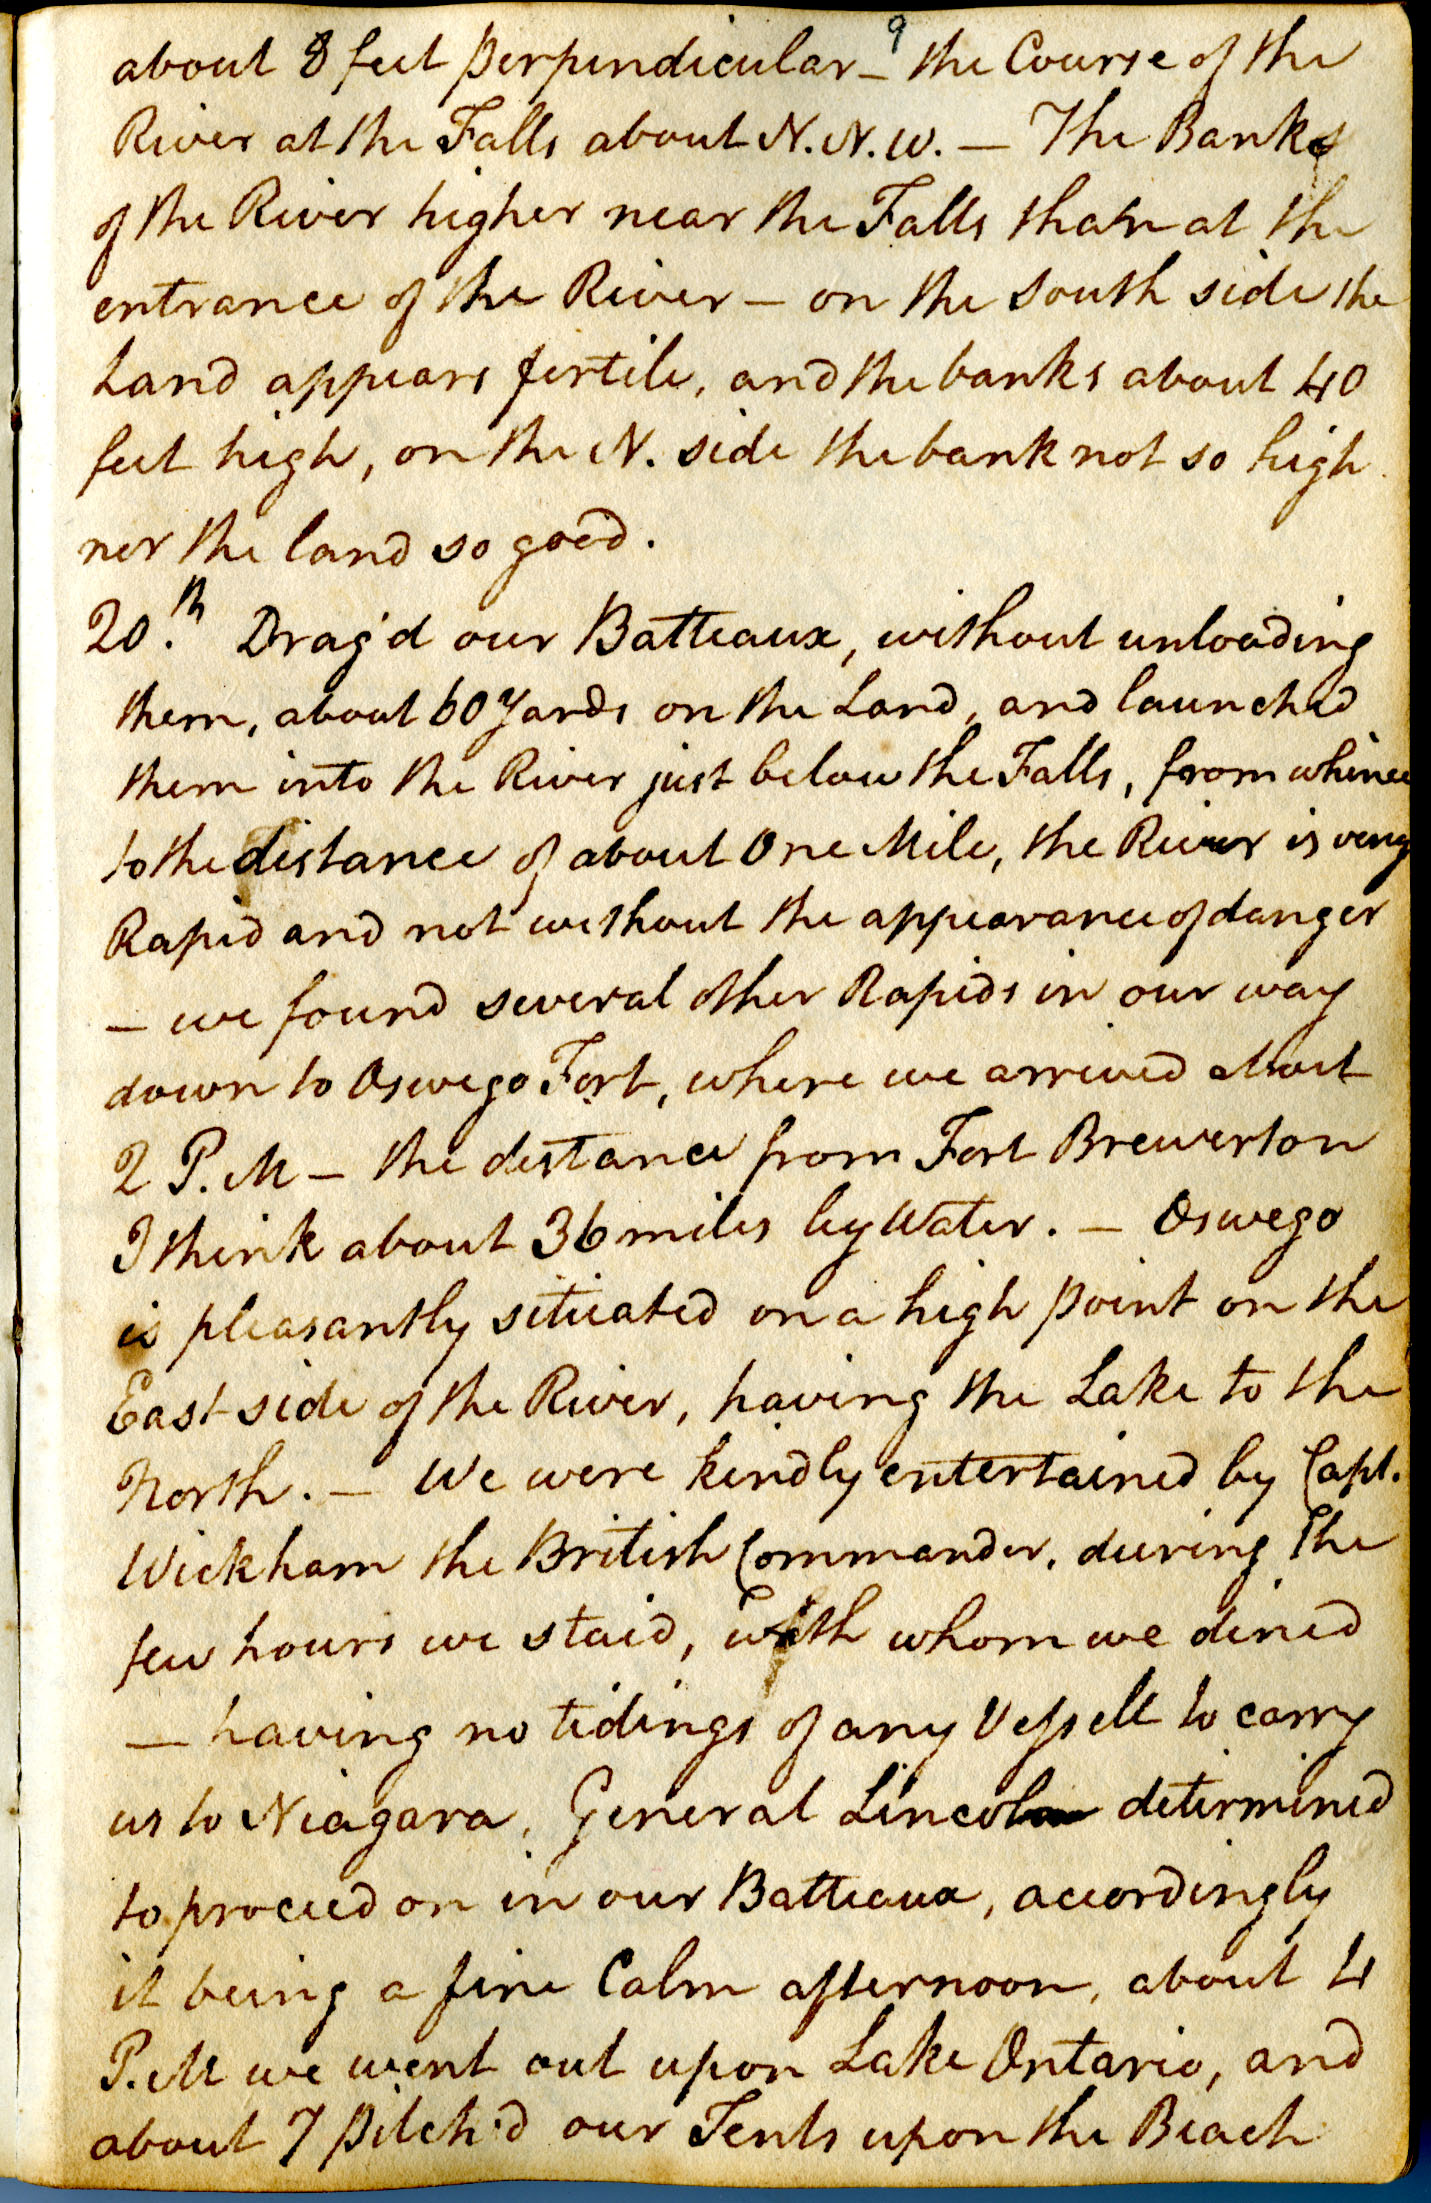 9
about 8 feet perpendicular – the Course of the
River at the Falls about N.N.W. – The Banks
of the River higher near the Falls than at the
entrance of the River – on the South side the
Land appears fertile, and the banks about 40
feet high, on the N. side the bank not so high
nor the land so good.
20.th Drag'd our Batteaux, without unloading
them, about 60 Yards on the Land, and launched
them into the River just below the Falls, from whence
to the distance of about One Mile, the River is very
Rapid and not without the appearance of danger
– we found several other Rapids in our way
down to Oswego Fort, where we arrived about
2 P.M – the distance from Fort Brewerton
I think about 36 miles by Water. – Oswego
is pleasantly situated on a high point on the
East side of the River, having the Lake to the
North. – We were kindly entertained by Capt.
Wickham the British Commander, during the
few hours we staid, with whom we dined
– having no tidings of any Vessell to carry
us to Niagara, General Lincoln determined
to proceed on in our Batteaux, accordingly
it being a fine Calm afternoon, about 4
P.M we went out upon Lake Ontario, and
about 7 pitch'd our Tents upon the Beach